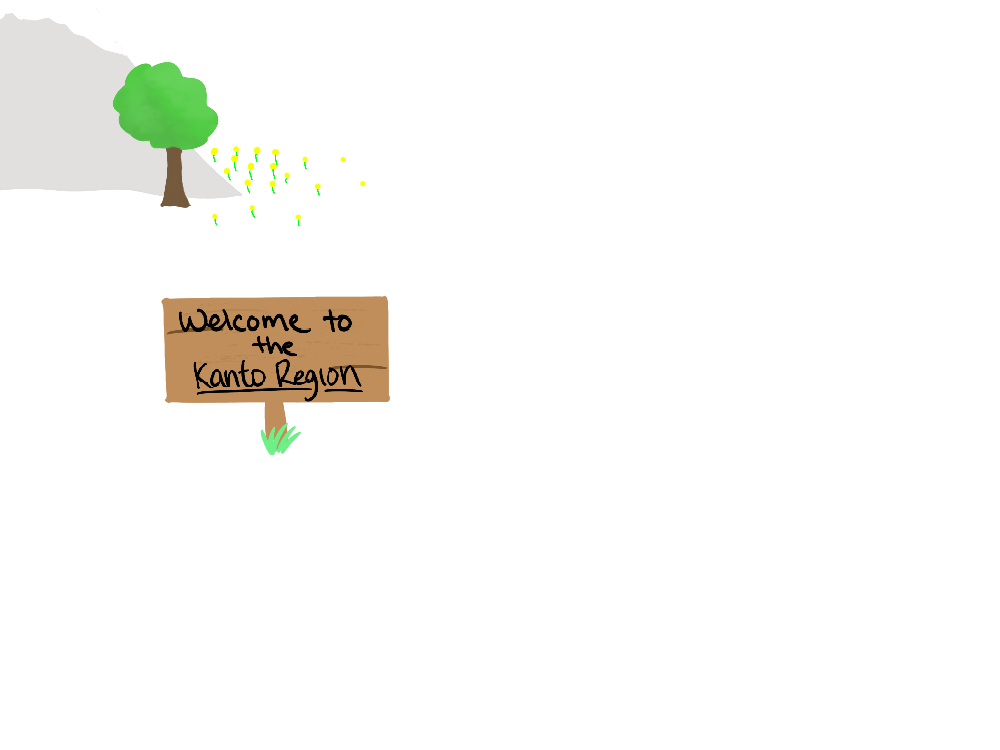 Welcome to
the
Kanto Region